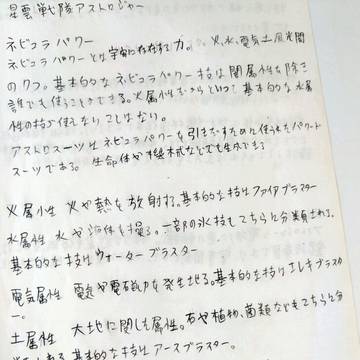 星雲戦隊アストロジャー
ネビュラパワー
ネビュラパワーとは宇宙に存在する力。火、水、電気、土、風、光、闇
の7つ。基本的なネビュラパワー技は闇属性を除き
誰でも使うことができる。火属性だからといって基本的な水属
性の技が使えないことはない。
アストロスーツはネビュラパワーを引きだすために作られたパワード
スーツである。生命体や機械などでも生成できる
火属性 火や熱を放射する。基本的な技はファイアブラスター
水属性 水や液体を操る。一部の氷技もこちらに分類される。
基本的な技はウォーターブラスター
電気属性 電気や電磁力を発生させる。基本的な技はエレキブラスタ
ー。
土属性 大地に関した属性。石や植物、菌類などもこちらに分
基本的な技はアースブラスター。